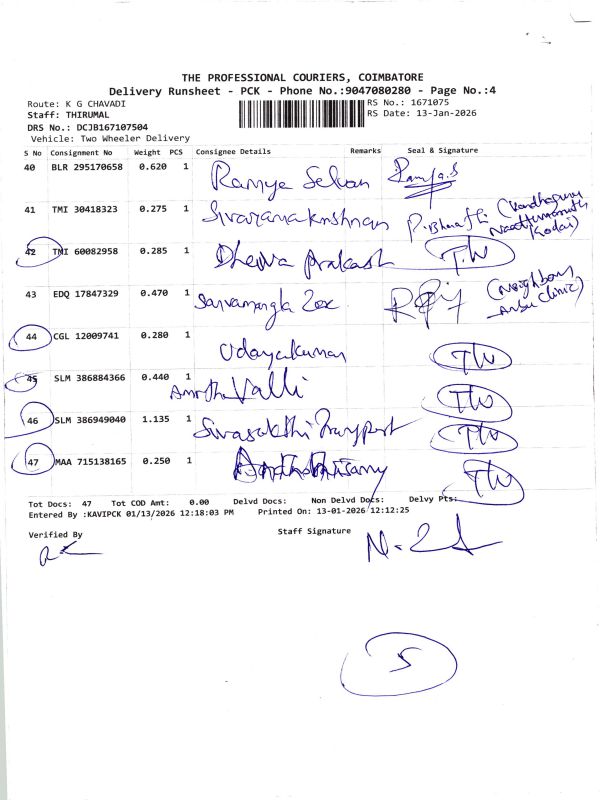 THE PROFESSIONAL COURIERS, COIMBATORE
Delivery Runsheet - PCK - Phone No.:9047080280 - Page No.:4
Route: K G CHAVADI
RS No.: 1671075
Staff: THIRUMAL
RS Date: 13-Jan-2026
DRS No.: DCJB167107504
Vehicle: Two Wheeler Delivery
S No Consignment No Weight PCS Consignee Details Remarks Seal & Signature
40 BLR 295170658 0.620 1 Ramya Selvan
41 TMI 30418323 0.275 1 Sivaramakrishnan
42 TMI 60082958 0.285 1 Prakash T.W
43 EDQ 17847329 0.470 1 (Neighbour Clinic)
44 CGL 12009741 0.280 1 Udayakumar TW
45 SLM 386884366 0.440 1 Valli TW
46 SLM 386949040 1.135 1 Sivasakthi Transport TW
47 MAA 715138165 0.250 1 TW
Tot Docs: 47 Tot COD Amt: 0.00 Delvd Docs: Non Delvd Docs: Delvy Pts:
Entered By :KAVIPCK 01/13/2026 12:18:03 PM Printed On: 13-01-2026 12:12:25
Verified By Staff Signature
5